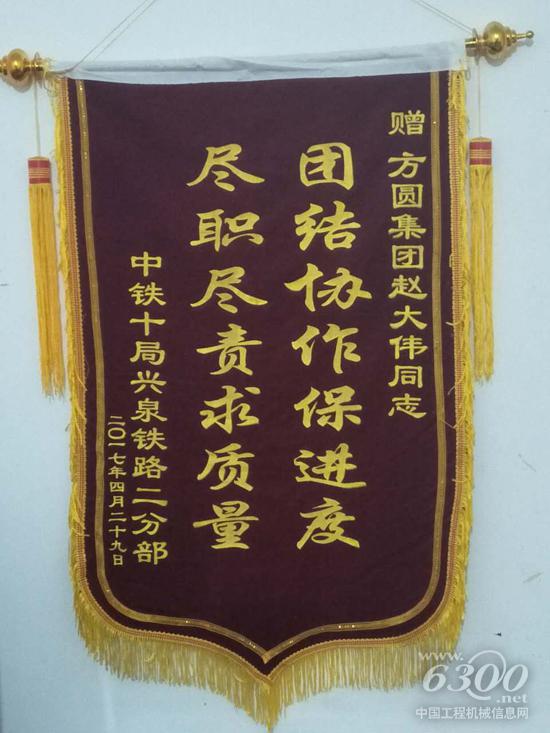 赠 方圆集团赵大伟同志
团结协作保进度
尽职尽责求质量
中铁十局兴泉铁路二分部
二〇一七年四月二十九日
www.
6300
.net
中国工程机械信息网